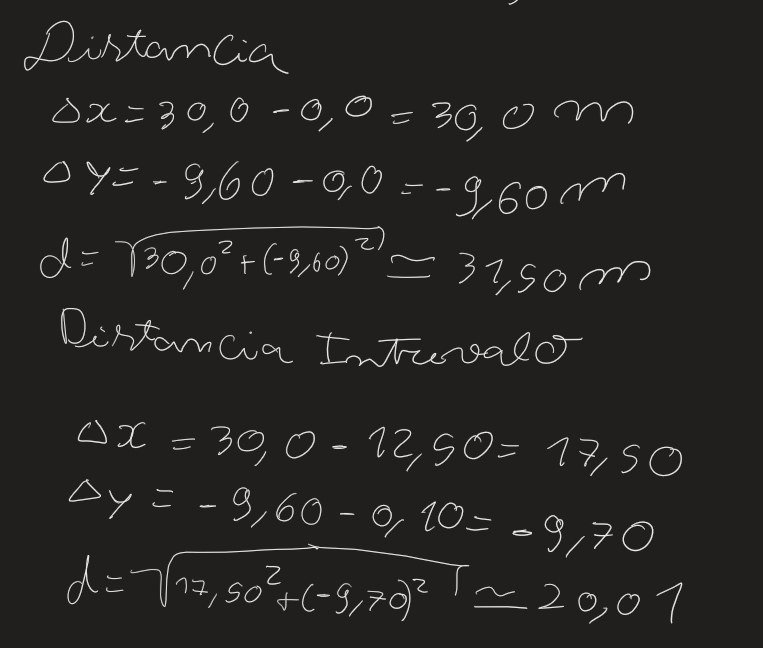 Distancia
Δx = 30,0 - 0,0 = 30,0 m
Δy = - 9,60 - 0,0 = - 9,60 m
d = √(30,0² + (-9,60)²) ≃ 31,50 m
Distancia Intervalo
Δx = 30,0 - 12,50 = 17,50
Δy = - 9,60 - 0,10 = - 9,70
d = √17,50² + (-9,70)² ≃ 20,01